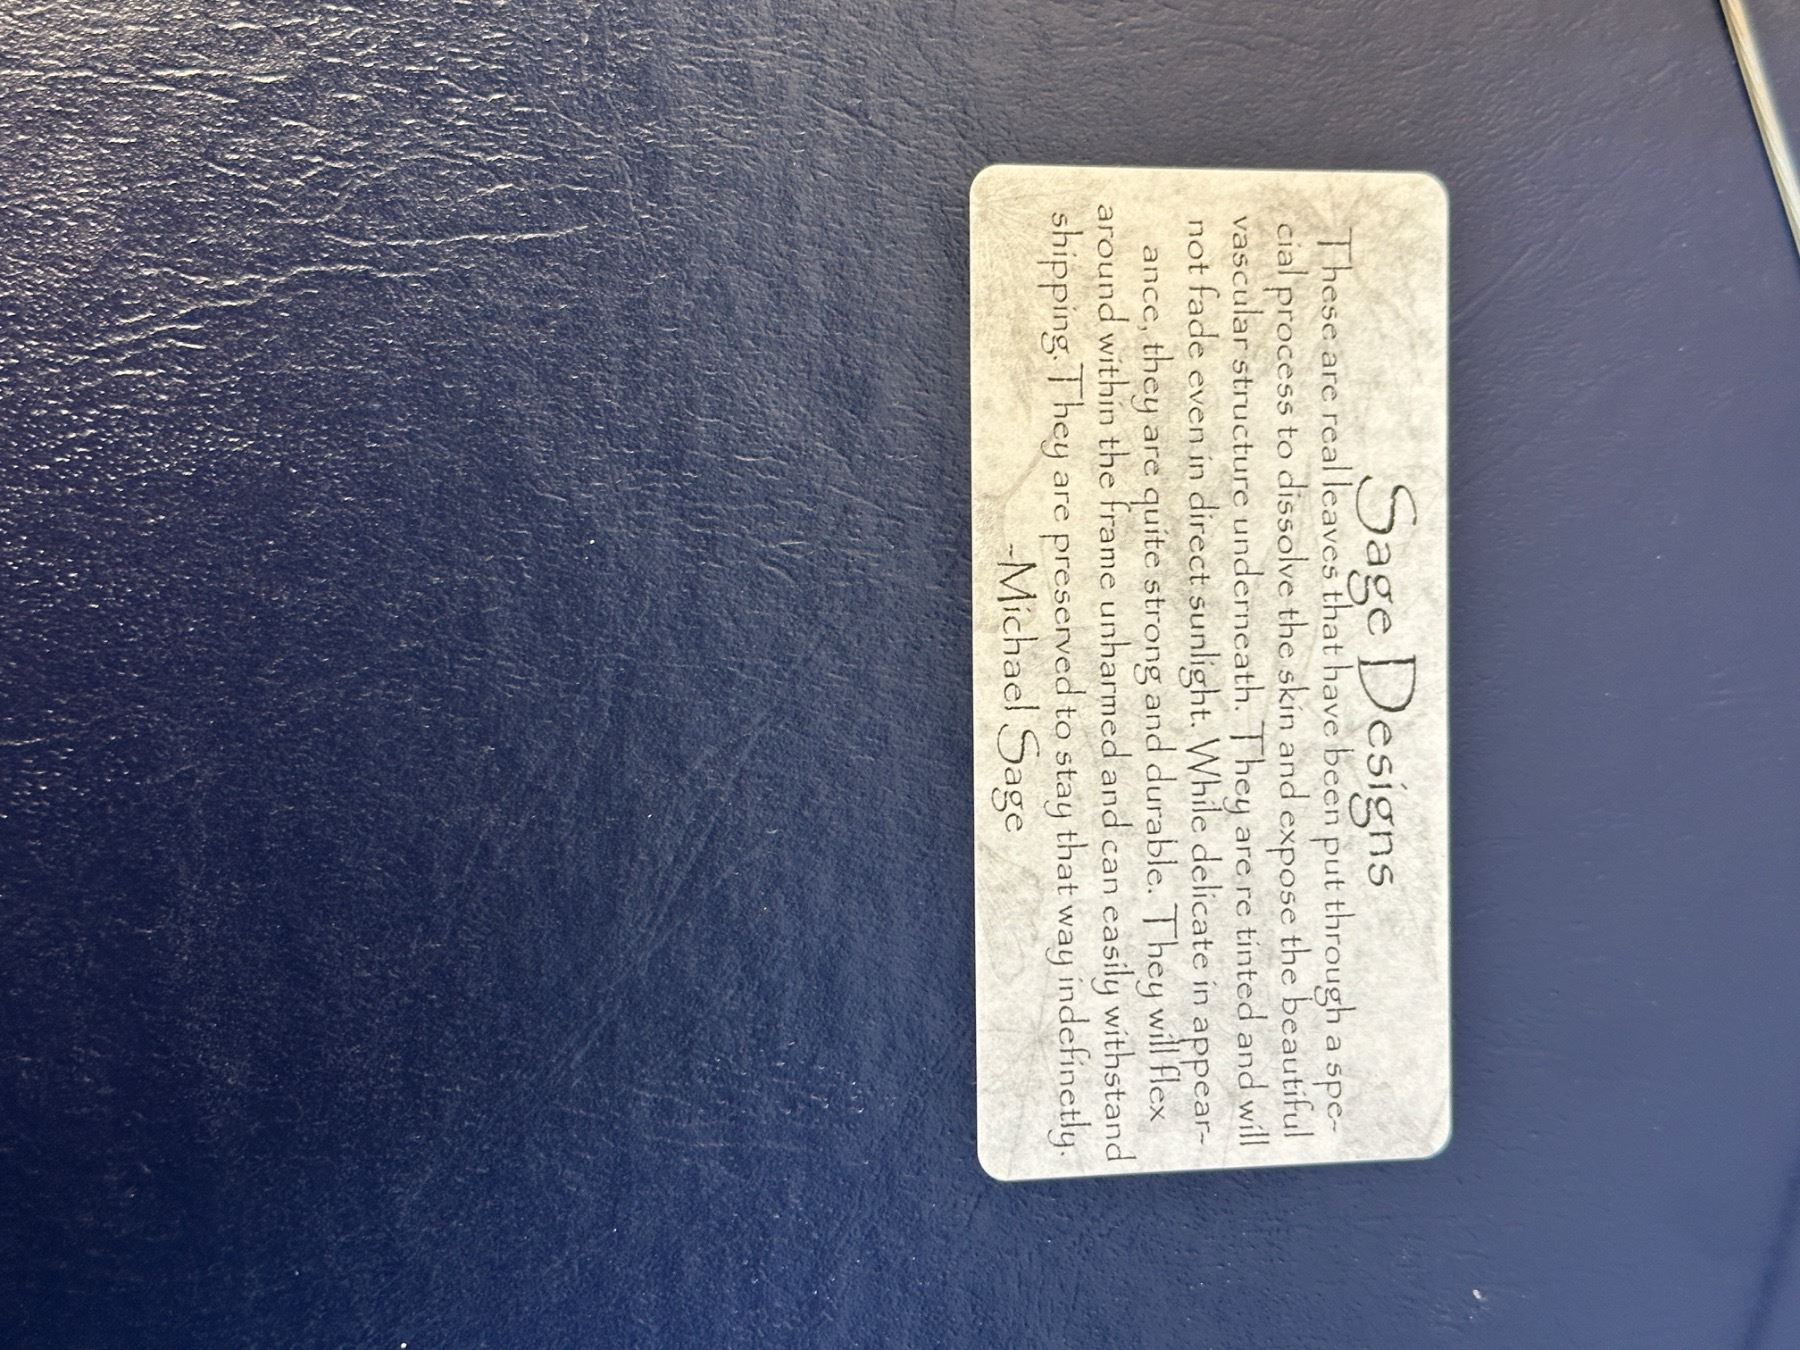 Sage Designs
These are real leaves that have been put through a spe-
cial process to dissolve the skin and expose the beautiful
vascular structure underneath. They are re tinted and will
not fade even in direct sunlight. While delicate in appear-
ance, they are quite strong and durable. They will flex
around within the frame unharmed and can easily withstand
shipping. They are preserved to stay that way indefinetly.
-Michael Sage